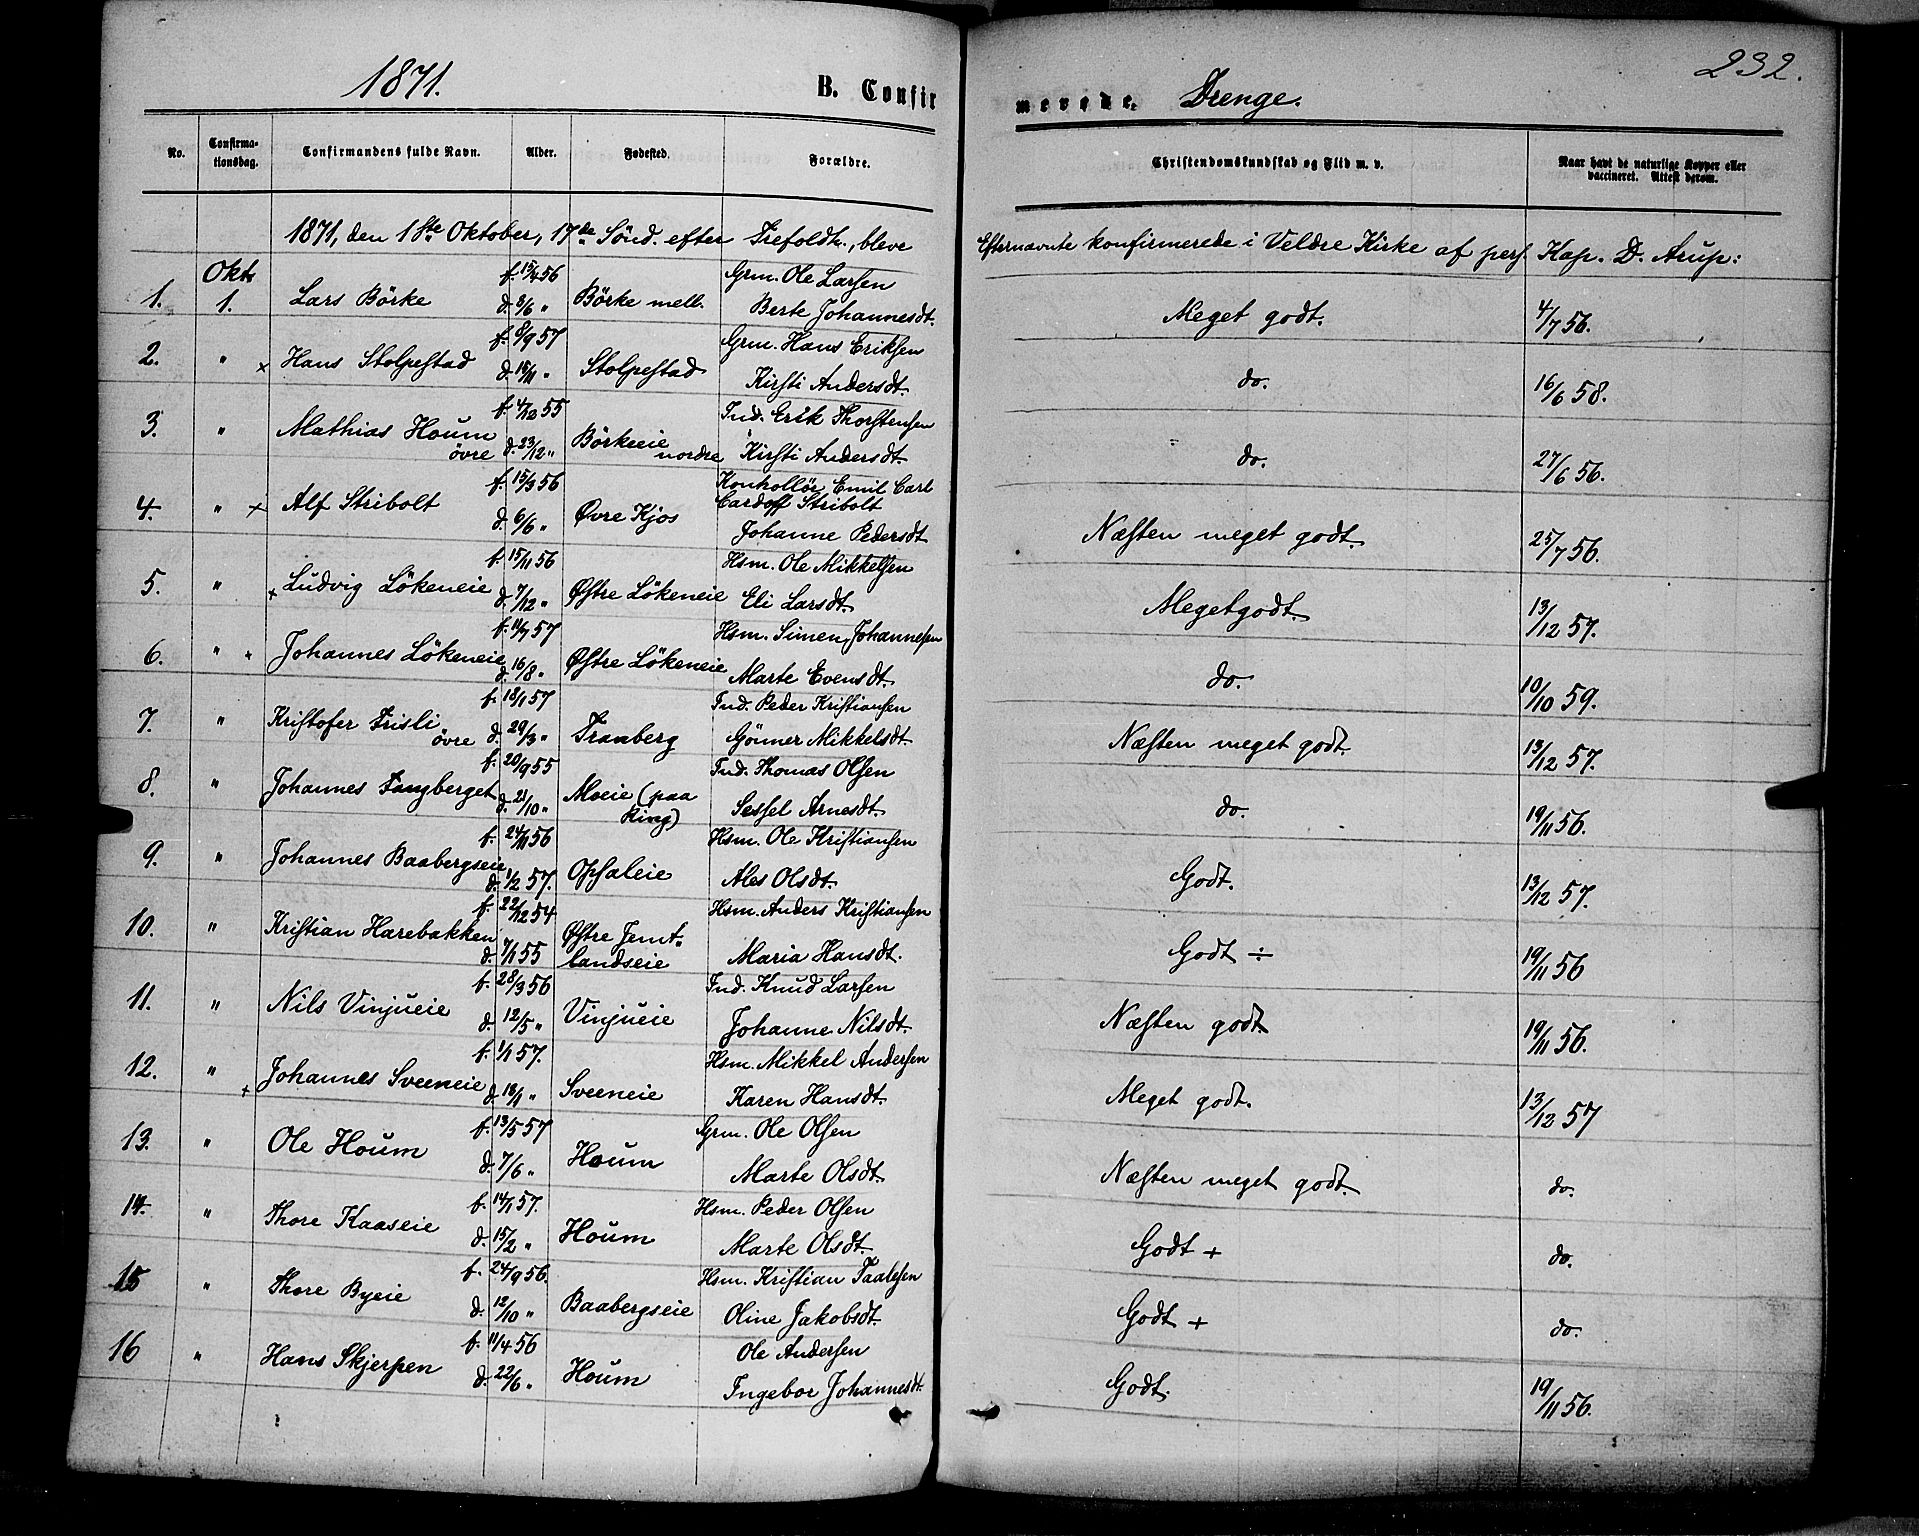 1871.
B. Confirmerede. Drenge.
232.
No.
Confirmationsdag.
Confirmandens fulde Navn.
Alder.
Fødested.
Forældre.
Christendomskundskab og Flid m. v.
Naar havt de naturlige Kopper eller vaccineret. Attest derom.
1871, den 1ste Oktober, 17de Sönd. efter Trefoldh., bleve Efternævnte konfirmerede i Veldre Kirke af pers. Kap. D. Arup:
Oktr
f. 15/4 56 Grm. Ole Larsen
1. 1. Lars Börke d. 8/6 " Börke mell. Berte Johannesdt. Meget godt. 4/7 56.
f. 8/9 57 Grm. Hans Eriksen
2. " × Hans Stolpestad d. 15/11 " Stolpestad Kirsti Andersdt. do. 16/6 58.
f. 4/12 55 Ind. Erik Thorstensen
3. " Mathias Houm øvre d. 23/12 " Börkeeie nordre Kirsti Andersdt. do. 27/6 56.
f. 15/3 56 Konhollör Emil Carl
Cardoff Stribolt
4. " × Alf Stribolt d. 6/6 " Øvre Kjos Johanne Pedersdt Næsten meget godt. 25/7 56.
f. 15/11 56 Hsm. Ole Mikkelsen
5. " × Ludvig Lökeneie d. 7/12 " Østre Lökeneie Eli Larsdt. Meget godt. 13/12 57.
f. 11/7 57 Hsm. Simen Johannesen
6. " × Johannes Lökeneie d. 16/8 " Østre Lökeneie Marte Evensdt. do. 10/10 59.
f. 18/1 57 Ind. Peder Kristiansen
7. " Kristofer Frisli øvre d. 29/3 " Tranberg Gönner Mikkelsdt. Næsten meget godt. 13/12 57.
f. 20/9 55 Ind. Thomas Olsen
8. " Johannes Fangberget d. 21/10 " Moeie (paa Ring) Sessel Arnesdt. do. 19/11 56.
f. 24/11 56 Hsm. Ole Kristiansen
9. " Johannes Baabergseie d. 1/2 57. Opsaleie Ales Olsdt. Godt. 13/12 57.
f. 22/12 54 Hsm. Anders Kristiansen
10. " Kristian Harebakken d. 7/1 55 Østre Jemtlandseie Maria Hansdt. Godt ÷ 19/11 56
f. 28/3 56 Ind. Knud Larsen
11. " Nils Vinjueie d. 12/5 " Vinjueie Johanne Nilsdt. Næsten godt. 19/11 56.
f. 1/1 57. Hsm. Mikkel Andersen
12. " × Johannes Sveeneie d. 18/1 " Sveeneie Karen Hansdt. Meget godt. 13/12 57
f. 13/5 57 Grm. Ole Olsen
13. " Ole Houm d. 7/6 " Houm Marte Olsdt. Næsten meget godt. do.
f. 14/1 57. Hsm. Peder Olsen
14. " Thore Kaaseie d. 15/2 " Houm Marte Olsdt. Godt + do.
f. 24/9 56. Hsm. Kristian Taalesen
15 " Thore Byeie d. 12/10 " Baabergseie Oline Jakobsdt. Godt + do.
f. 11/4 56 Ole Andersen
16 " Hans Skjerpen d. 22/6 " Houm Ingebor Johannesdt. Godt. 19/11 56.